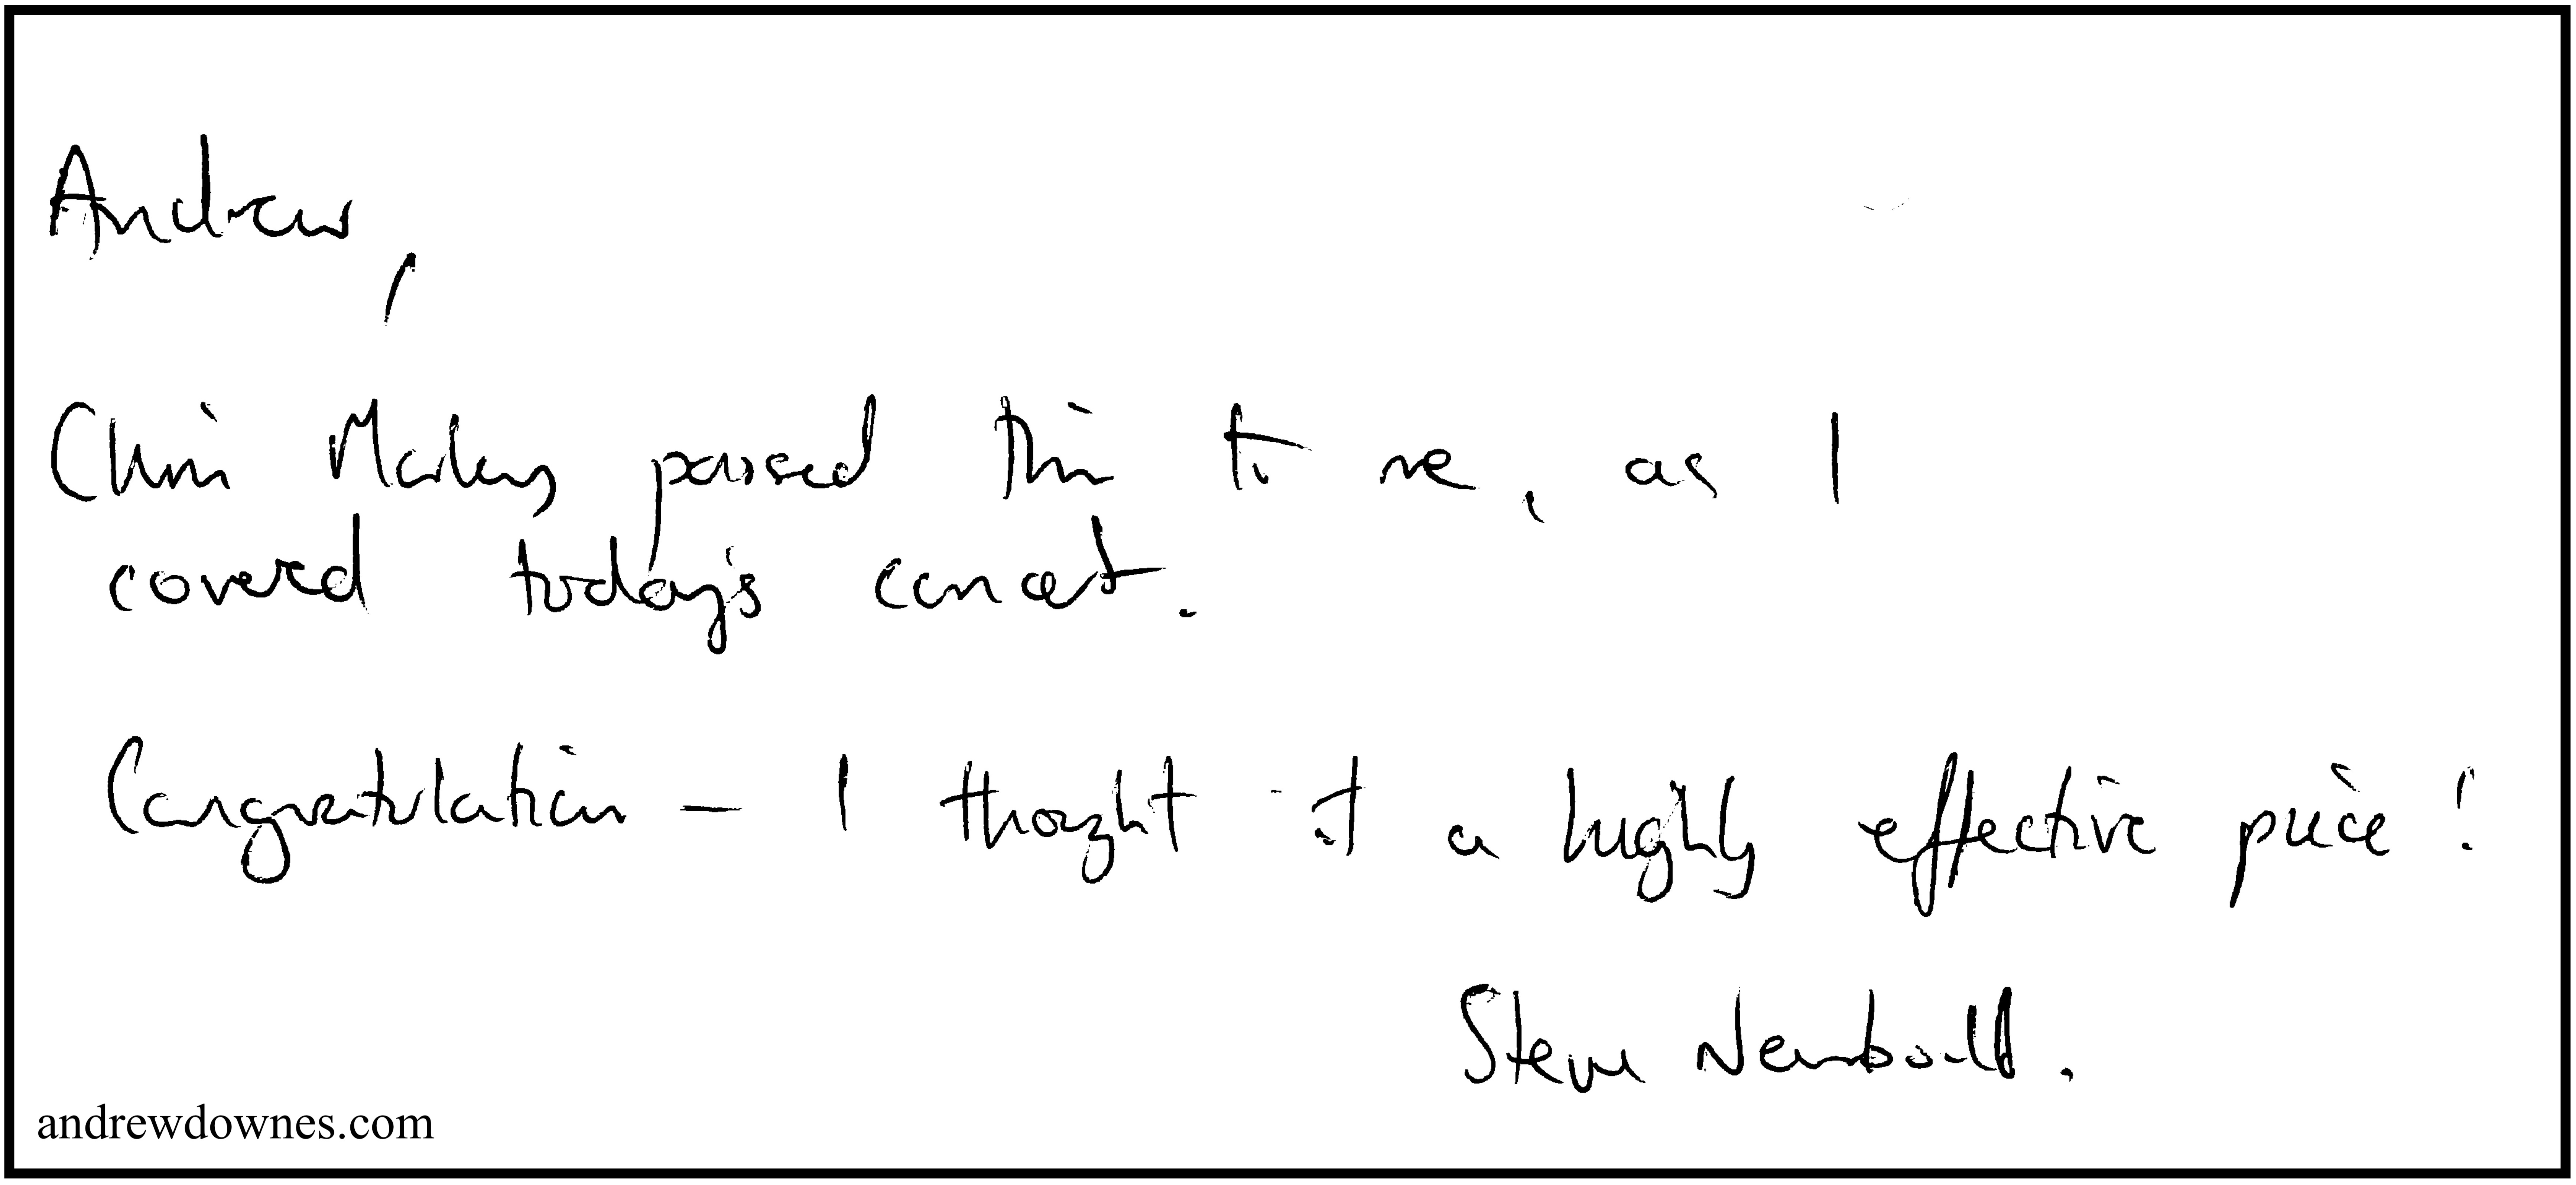 Andrew,
Chris Morley passed this to me, as I
covered today's concert.
Congratulations – I thought it a highly effective piece!
Steve Newbould.
andrewdownes.com